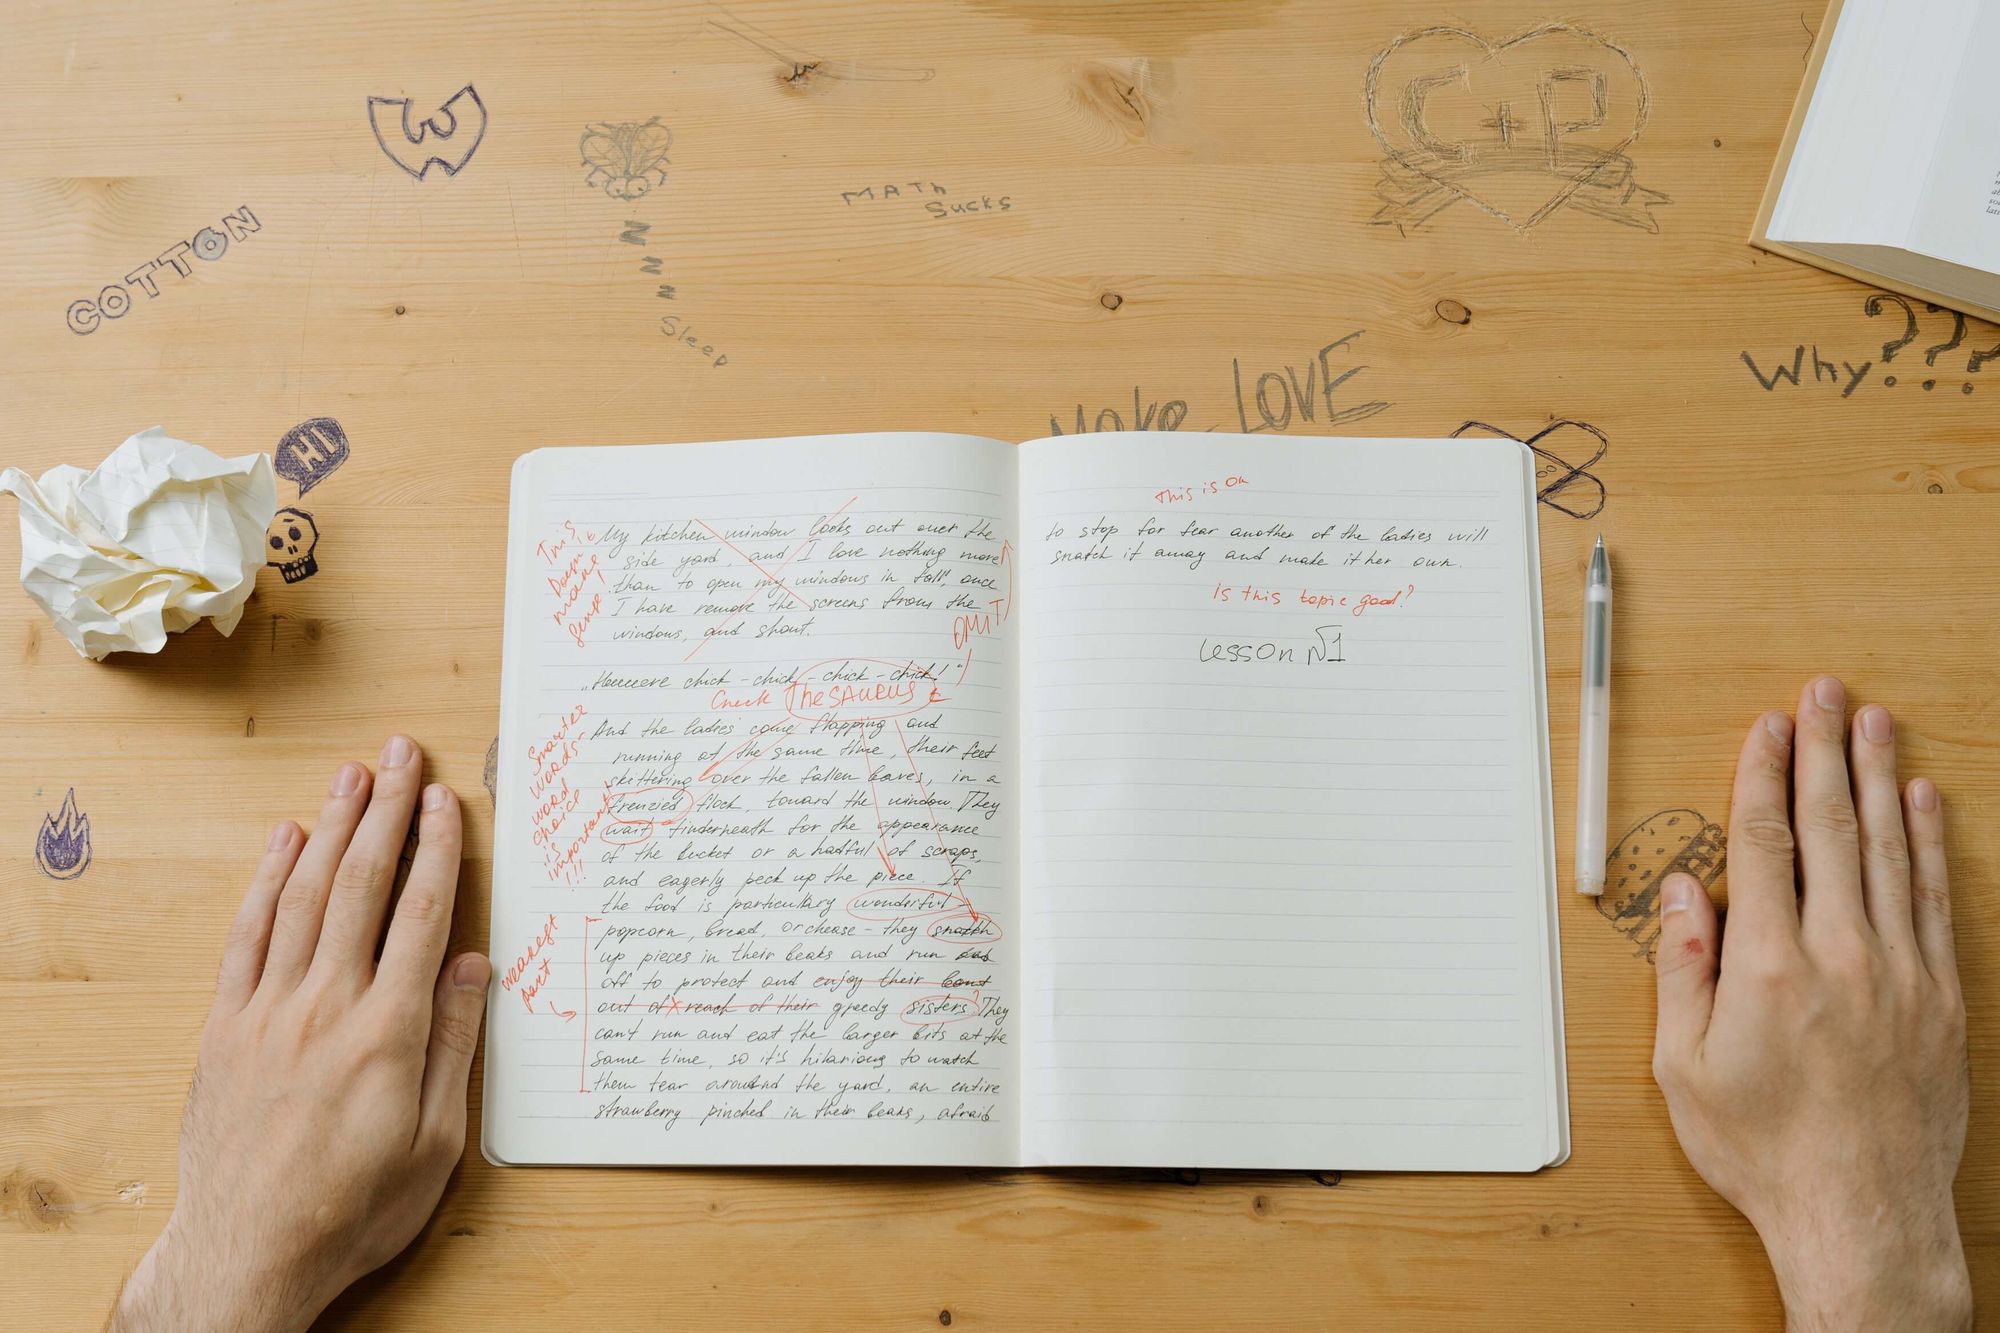 W
C+P
MATH
Sucks
COTTON
N
N
N
N
Sleep
Why???
Make LOVE
HI
This
makes
sense!
My kitchen window looks out over the
side yard, and I love nothing more
than to open my windows in fall, once
I have remove the screens from the
windows, and shout.
OMIT
„Heeeere chick - chick - chick - chick!"
Check TheSAURUS
And the ladies come flapping and
running at the same time, their feet
skittering over the fallen leaves, in a
frenzied flock, toward the window. They
wait finderneath for the appearance
of the bucket or a hatful of scraps,
and eagerly peck up the piece. If
the food is particulary wonderful -
popcorn, bread, or chease - they snatch
up pieces in their beaks and run out
off to protect and enjoy their
out of x reach of their greedy sisters? They
can't run and eat the larger bits at the
same time, so it's hilarious to watch
them tear around the yard, an entire
strawberry pinched in their beaks, afraid
Smarter
words-
word
choice
is
important
!!!
weakest
part
This is OK
to stop for fear another of the ladies will
snatch it away and make it her own.
Is this topic good?
Lesson №1